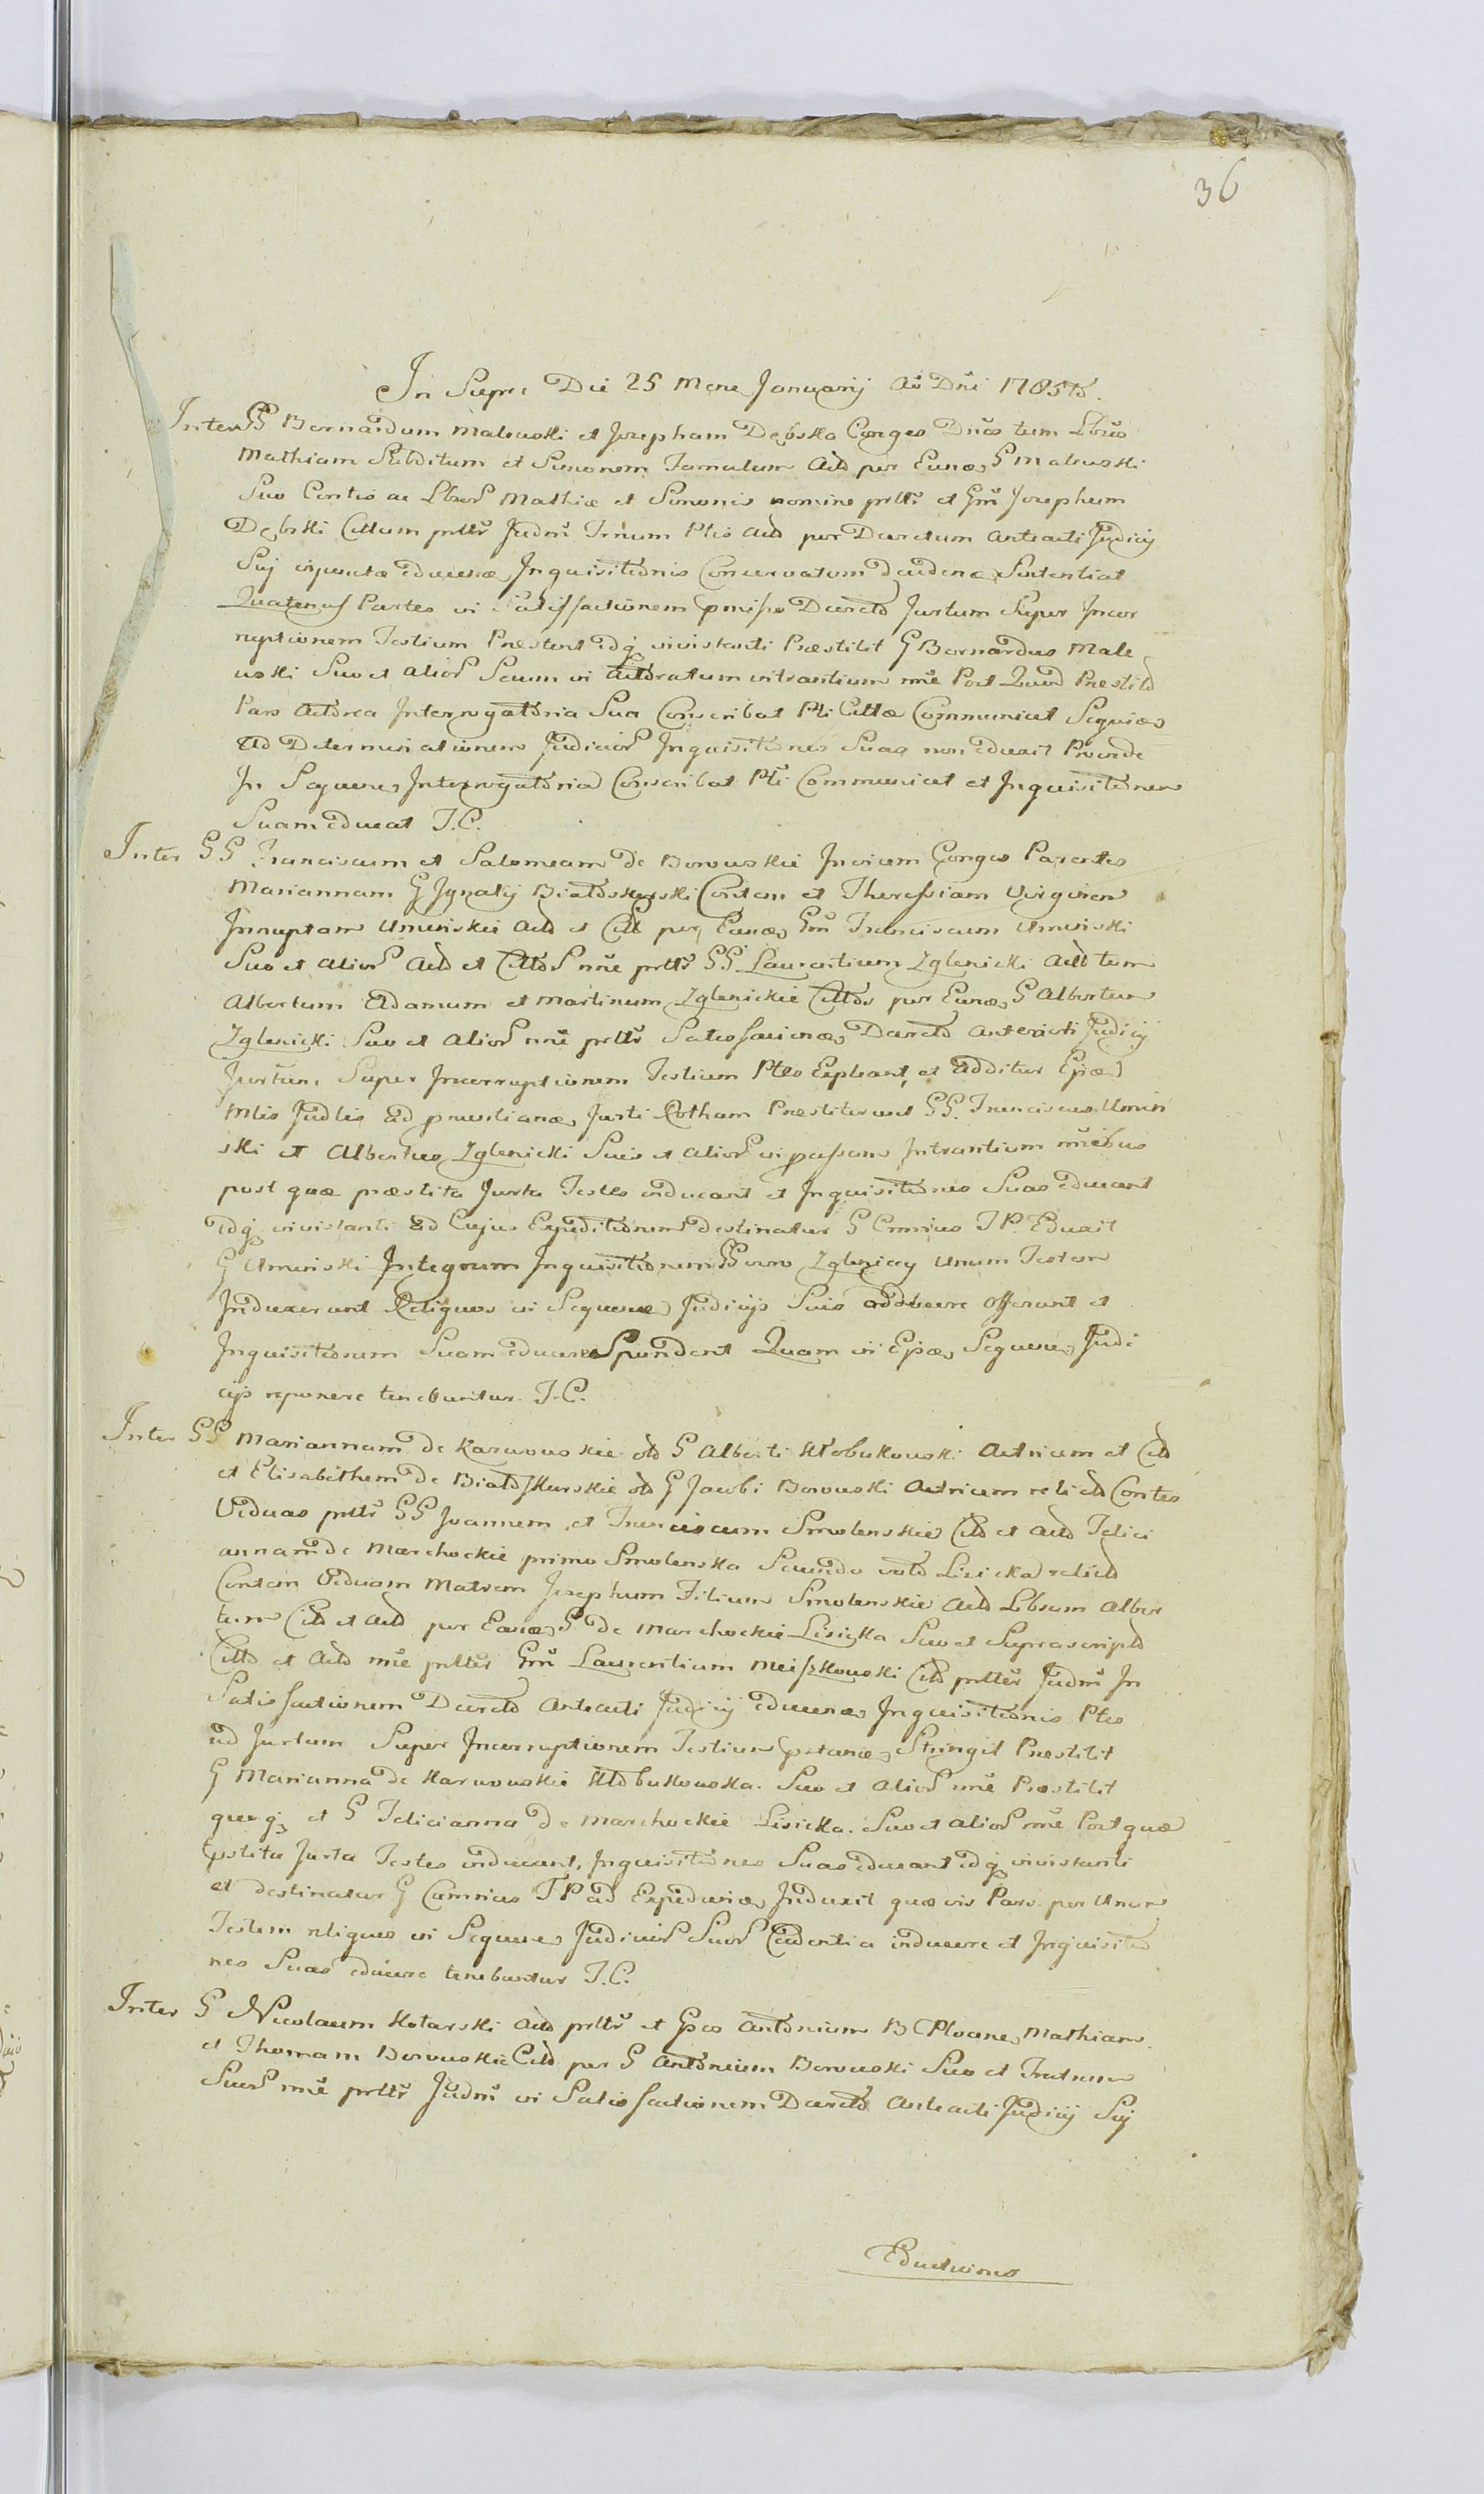 36
In Supre Die 25 Mene Januarij Ao Dni 1785to.
Inter GG Bernardum Malewski et Josepham Dębska Conges Dnos tum Lbros
Mathiam Subditum et Simonem Famulum Acto per Eunde G Malewski
Suo Contis ac Lbror Mathiæ et Simonis nomine prtte et Gm Josephum
Dębski Cittum prtte Judm Trium Ptis Acto per Decretum anteacti Judicij
Sui in puncto educenæ Inquisitionis Conservatum decidenæ Sententiat
Quatenus Partes in Satisfactionem præmisso Decreto Jurtum Super Incor
ruptionem Testium Præstent idq vivistanti Præstitit G Bernardus Male
wski Suo et alior Secum in Actoratum intrantium nne Post Quod Præstito
Pars Actorea Interrogatoria Sua Conscribat Pti Cittæ Communicet Sequiæ
Ad Determinationem Judicior Inquisitiones Suas non eduxit Proinde
In Sequen Interrogatoria Conscribat Pti Communicet et Inquisitionem
Suam educat T.C.
Inter GG Franciscum et Salomeam de Borowskie Invicem Conges Parentes
Mariannam G Ignatij Białoskurski Contem et Theressiam Virginem
Innuptam Uminskie Acto et Citto per Eunde Gm Franciscum Uminski
Suo et alior Acto et Cittor nne prtte GG Laurentium Zglenicki Acto tum
Albertum Adamum et Martinum Zglenickie Cittos per Eunde G Albertum
Zglenicki Suo et alior nne prtte Satisfacienæ Decreto anteacti Judicij
Jurtum Super Incorruptionem Testium Ptes Expleant, et Additur Epæ
Mtis Judtis ad præstanæ Jurti Rotham Præstiterunt GG. Franciscus Umin
ski et Albertus Zglenicki Suis et alior in passum Intrantium nnibus
post quæ præstita Jurta Testes inducant et Inquisitiones Suas educant
idq vivistanti ad Cujus Expeditionem destinatur G Cmnius T.P. Eduxit
G Uminski Integrum Inquisitionem GG vero Zgleniccy Unum Testem
Induxerunt Reliquos in Sequen Judicijs Suis adducere offerunt et
Inquisitionem Suam educere Spondent Quam in Epæ Sequen Judi
cijs reponere tenebuntur. T.C.
Inter GG Mariannam de Karwowskie oto G Alberti Kłobukowski Actricem et Cito
et Elisabetham de Białoskurskie oto G Jacobi Borowski Actricem relicto Contes
Viduas prtte GG Joannem et Franciscum Smolenskie Cito et Acto Felici
annam de Marchockie primo Smolenska Secundo voto Lisicka relicto
Contem Viduam Matrem Josephum Filium Smolenskie Acto Lbrum Alber
tum Cito et Acto per Eande G de Marchockie Lisicka Suo et Suprascripto
Citto et Acto nne prtte Gm Laurentium Meiszkowski Cito prtte Judm In
Satisfactionem Decreto Anteacti Judicij educenæ Inquisitionis Ptes
ad Jurtum Super Incorruptionem Testium pstanæ Stringit Præstitit
G Marianna de Karwowskie Kłobukowska. Suo et alior nne Præstitit
queq et G Felicianna de Marchockie Lisicka. Suo et alior nne Post quæ
pstita Jurta Testes inducant, Inquisitiones Suas educant idq vivistanti
et destinatur G Camnius T P ad Expedienæ Induxit quævis Pars per Unum
Testem reliquos in Sequen Judicior Suor Cadentia inducere et Inquisitio
nes Suas educere tenebuntur T.C.
Inter G Nicolaum Kotarski Acto prtte et Gsos Antonium B Plocne, Mathiam
et Thomam Borowskie Cito per G Antonium Borowski Suo et Fratrum
Suor nne prtte Judm in Satisfactionem Decreto Anteacti Judicij Sui
Eductiones